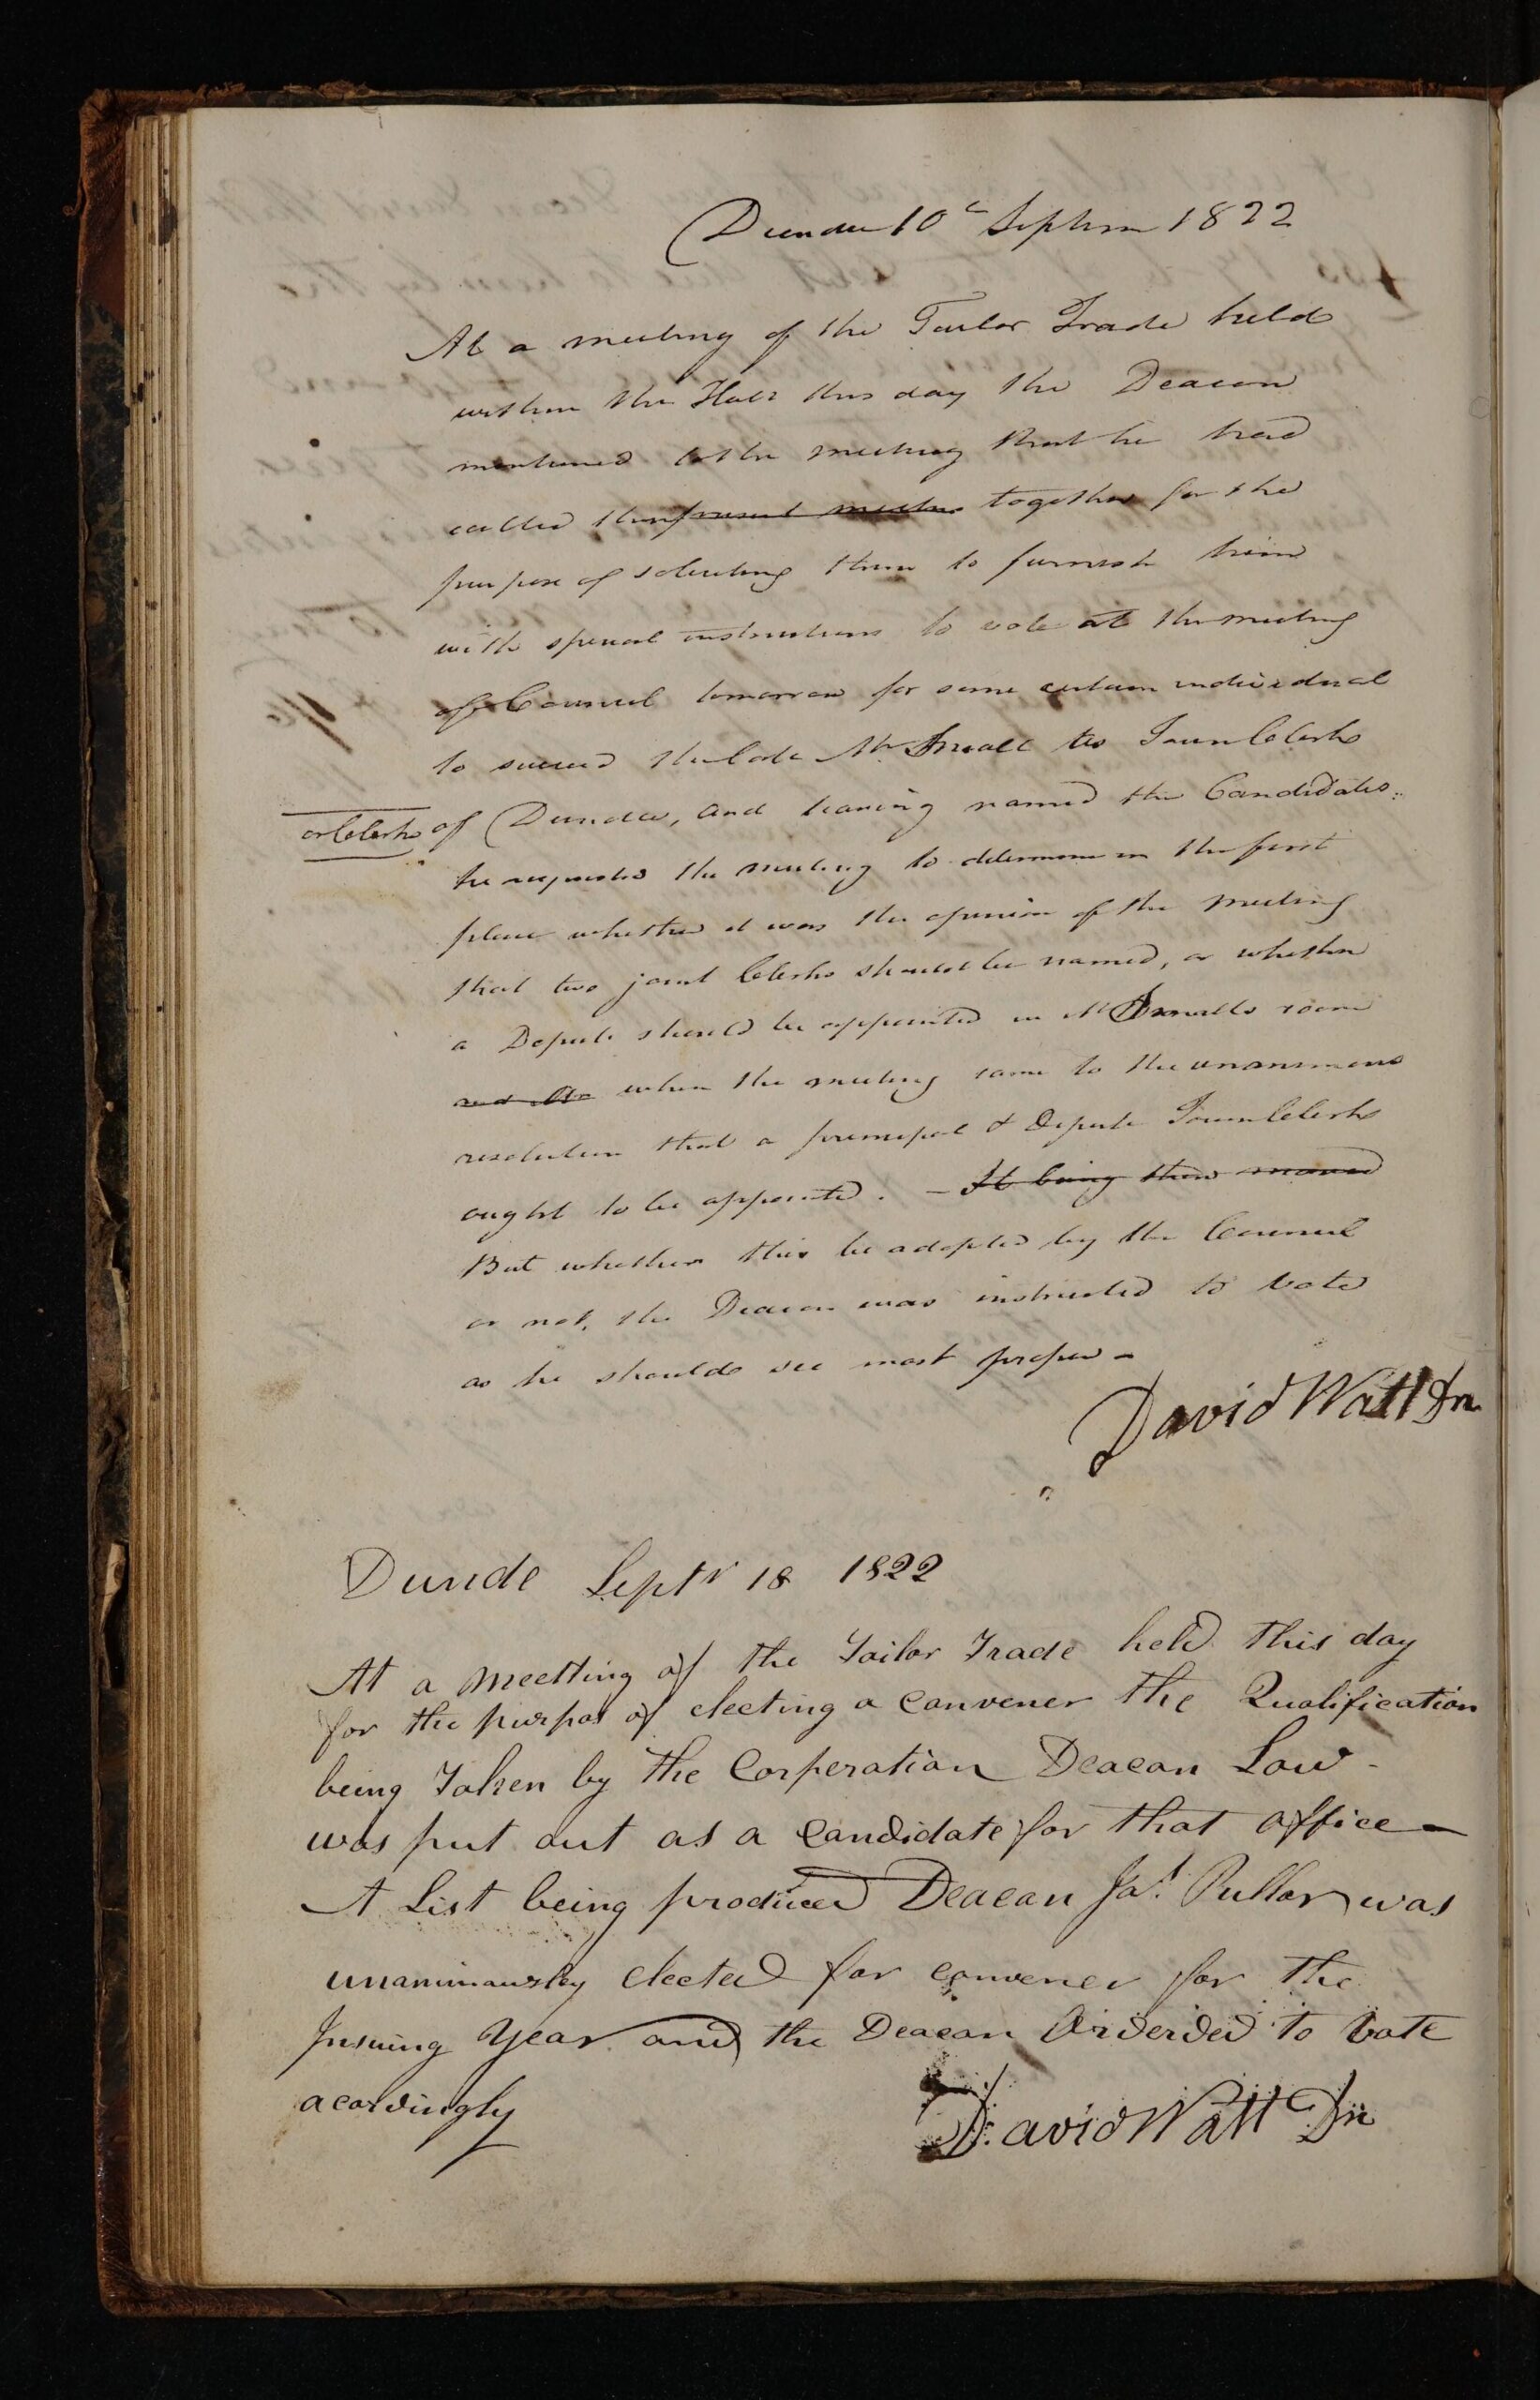 Dundee 10th Septem 1822
At a meeting of the Tailor Trade held
within the Hall this day the Deacon
mentioned to the meeting that he had
called them present meeting together for the
purpose of soliciting them to furnish him
with special instructions to vote at the meeting
of Council tomorrow for some certain individual
to succeed the late Mr Small as Town Clerk
or Clerks of Dundee, and having named the Candidates
he requested the meeting to determine in the first
place whether it was the opinion of the meeting
that two joint Clerks should be named, or whether
a Depute should be appointed in Mr Smalls room
when the meeting came to the unanimous
resolution that a principal & Depute Town Clerk
ought to be appointed. - It being then moved
But whether this be adopted by the Council
or not, the Deacon was instructed to vote
as he should see most proper -
David Watt Dn
Dunde Septr 18 1822
At a Meetting of the Tailor Trade held this day
for the purpos of electing a Convener the Qualification
being Taken by the Corperation Deacon Low -
was put out as a Candidate for that office -
A List being produced Deacon Jas. Pullar was
unanimousley elected for convener for the
Insuing Year and the Deacon Orderded to Vote
acordingly
David Watt Dn